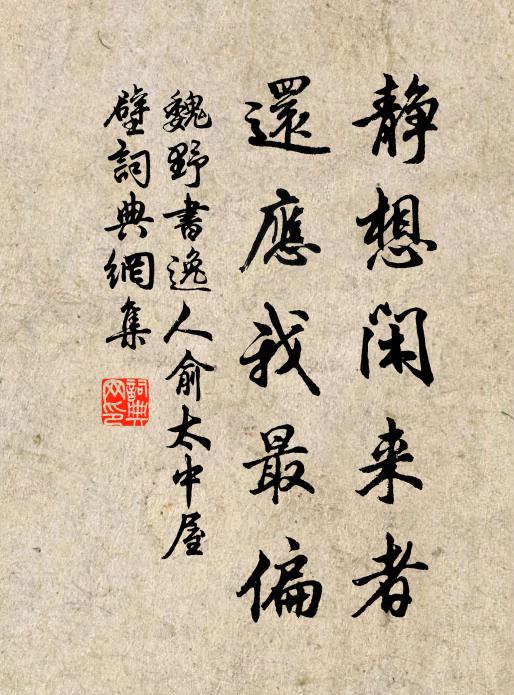 静想闲来者
還應我最偏
魏野書逸人俞太中屋
壁詞典網集
詞典网印